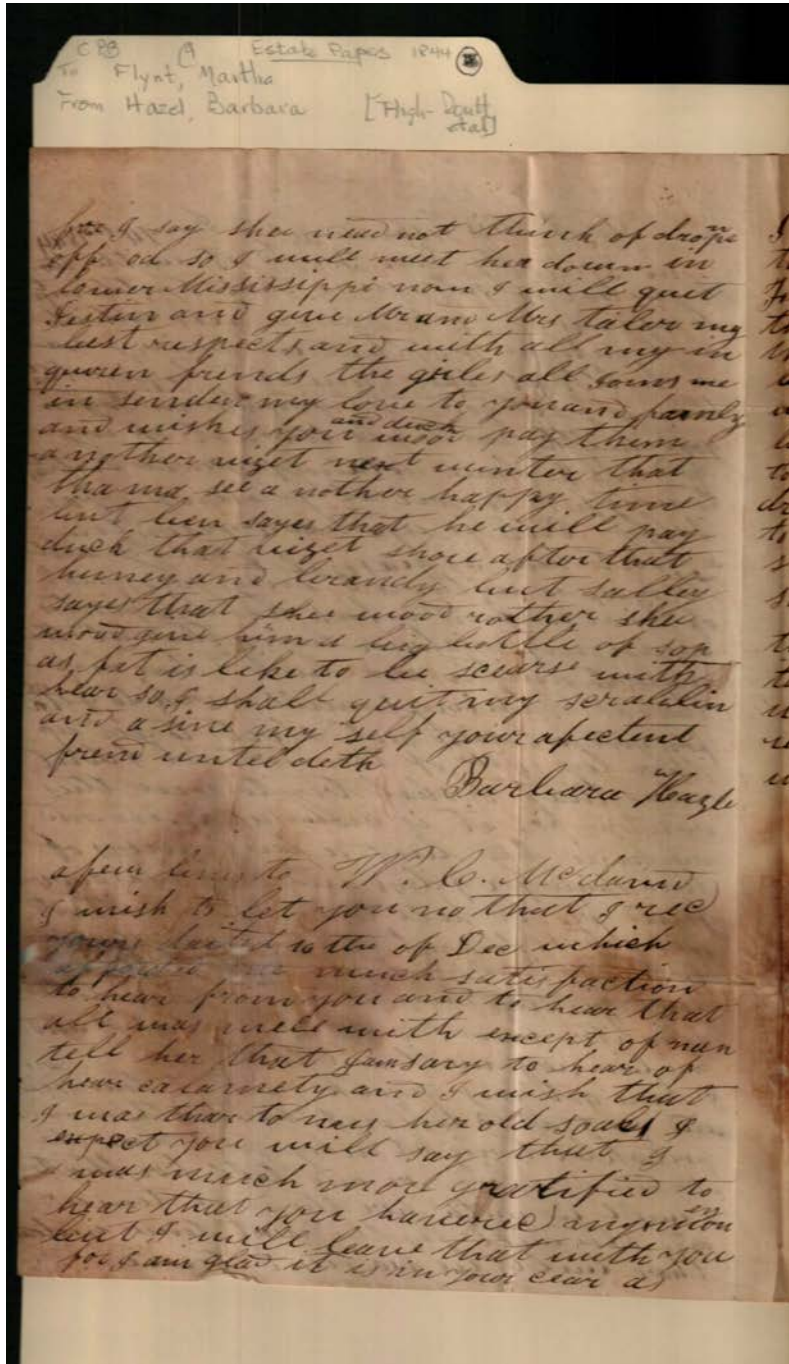 CPB 9 Estate Papes 1844
To Flynt, Martha
From Hazel, Barbara [High-Doutt
I say shee nead not think of
off od so I will meet her down in
lower Mississippi now I will quit
Jestin and give Mr and Mrs taler my
best respects and with all my in
quoren frends the girles all Joins me
in sender my love to you and family
and wishes you and duck pay them
a nother viset next winter that
tha ma see a nother happy time
but ben sayes that he will pay
duck that viset shore after that
huney and brandy but salley
sayes that shee wood rother shee
wood give him a big bottle of sop
as fat is like to be scearse with
hear so I shall quit my scrablin
and a sine my self your afectent
frend untel deth
Barbara Heazle
a few lines to W. C. Mcdavid
I wish to let you no that I rec
yours dated 10 the of Dec which
afforded me much satisfaction
to hear from you and to hear that
all was well with except of nan
tell her that I am sary to hear of
hear calamety and I wish that
I was thar to nus her old I
expect you will say that I
was much more gratified to
hear that you my
but I will leave that with you
for I am glad it is in your cear as